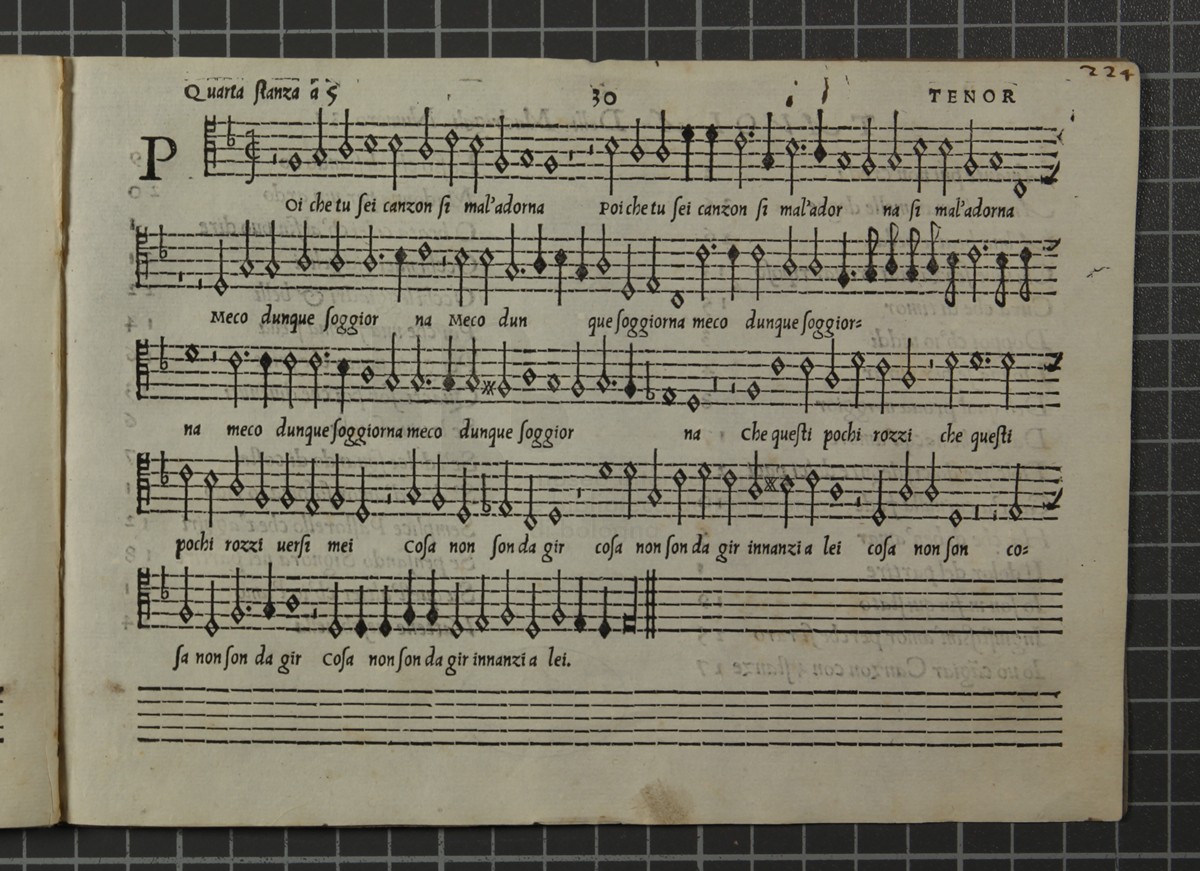 224
Quarta ſtanza à 5 30 TENOR
P
Oi che tu ſei canzon ſi mal'adorna Poi che tu ſei canzon ſi mal'ador na ſi mal'adorna
Meco dunque ſoggior na Meco dun que ſoggiorna meco dunque ſoggior=
na meco dunque ſoggiorna meco dunque ſoggior na Che queſti pochi rozzi che queſti
pochi rozzi uerſi mei Coſa non ſon da gir coſa non ſon da gir innanzi a lei coſa non ſon co=
ſa non ſon da gir Coſa non ſon da gir innanzi a lei.